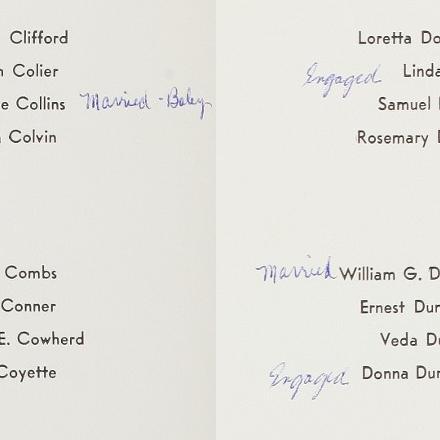 Clifford
Colier
e Collins Married - Baby
Colvin
Combs
Conner
E. Cowherd
Coyette
Loretta Do
Engaged Linda
Samuel
Rosemary D
Married William G. D
Ernest Dur
Veda Du
Engaged Donna Dur